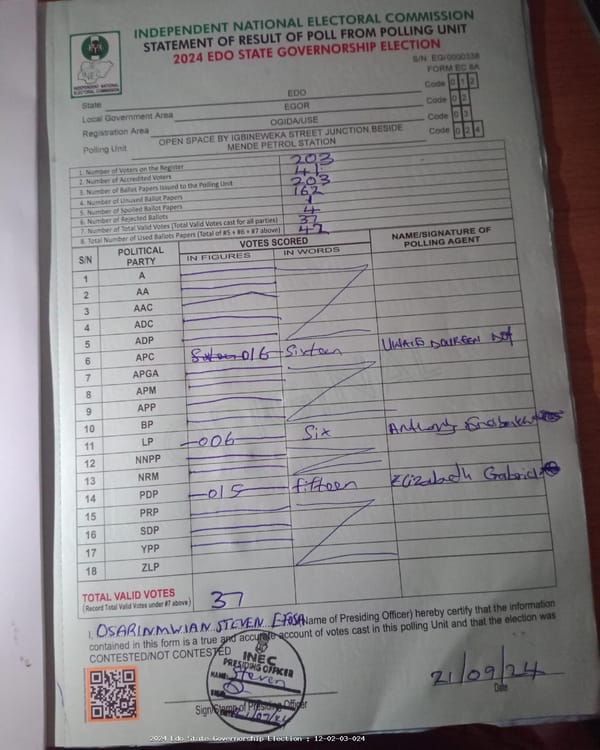 INDEPENDENT NATIONAL ELECTORAL COMMISSION
STATEMENT OF RESULT OF POLL FROM POLLING UNIT
2024 EDO STATE GOVERNORSHIP ELECTION
INEC
INDEPENDENT NATIONAL
ELECTORAL COMMISSION
S/N: EG/0000338
FORM EC 8A
State EDO Code 0 1 2
Local Government Area EGOR Code 0 2
Registration Area OGIDA/USE Code 0 3
Polling Unit OPEN SPACE BY IGBINEWEKA STREET JUNCTION, BESIDE MENDE PETROL STATION Code 0 2 4
1. Number of Voters on the Register 203
2. Number of Accredited Voters 41
3. Number of Ballot Papers Issued to the Polling Unit 203
4. Number of Unused Ballot Papers 162
5. Number of Spoiled Ballot Papers 1
6. Number of Rejected Ballots 4
7. Number of Total Valid Votes (Total Valid Votes cast for all parties) 37
8. Total Number of Used Ballots Papers (Total of #5 + #6 + #7 above) 42
S/N POLITICAL PARTY VOTES SCORED NAME/SIGNATURE OF POLLING AGENT
IN FIGURES IN WORDS
1 A
2 AA
3 AAC
4 ADC
5 ADP
6 APC 016 Sixteen
7 APGA
8 APM
9 APP
10 BP
11 LP 006 Six Anthony
12 NNPP
13 NRM
14 PDP 015 fifteen Elizabeth Gabriel
15 PRP
16 SDP
17 YPP
18 ZLP
TOTAL VALID VOTES 37
(Record Total Valid Votes under #7 above)
I, OSARINMWIAN STEVEN EFOSA (Name of Presiding Officer) hereby certify that the information
contained in this form is a true and accurate account of votes cast in this polling Unit and that the election was
CONTESTED/NOT CONTESTED
INEC
PRESIDING OFFICER
NAME: Steven
SIGN
21/09/24
Sign/Stamp of Presiding Officer
21/09/24
Date
2024 Edo State Governorship Election : 12-02-03-024